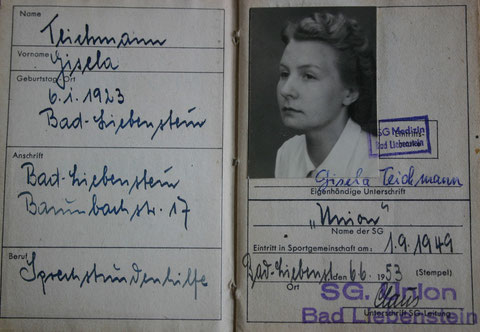 Name
Teichmann
Vorname
Gisela
Geburtstag-Ort
6.1.1923
Bad-Liebenstein
Anschrift
Bad-Liebenstein
Baumbachstr. 17
Beruf
Sprechstundenhilfe
SG Medizin
Eintritts-
Bad Liebenstein
Gisela Teichmann
Eigenhändige Unterschrift
"Union"
Name der SG
Eintritt in Sportgemeinschaft am: 1.9.1949
Bad-Liebenst. den 6.6. 1953 (Stempel)
Ort
SG. Union
Claus
Unterschrift SG-Leitung
Bad Liebenstein